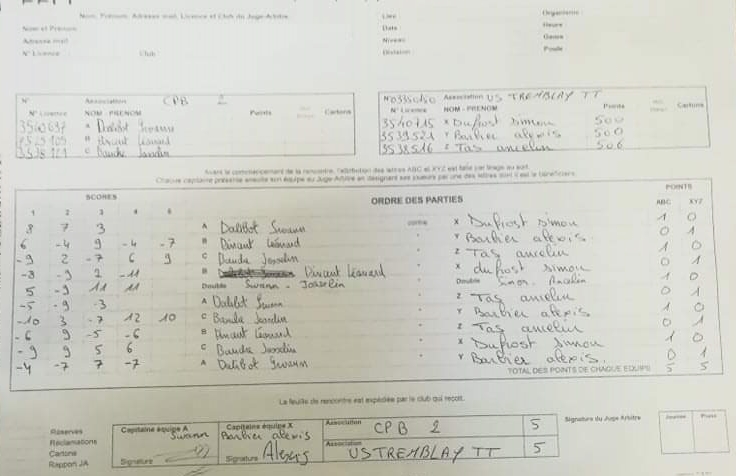 Nom, Prénom, Adresse mail, Licence et Club du Juge-Arbitre
Nom et Prénom
Adresse mail
N° Licence Club
Lieu
Date
Niveau
Division
Organisme
Heure
Genre
Poule
N° Association CPB 2
N° Licence NOM - PRENOM Points Cartons
A Dalibot Swann
B Dinant Léonard
C Banda Josselin
N° 03350150 Association US TREMBLAY TT
N° Licence NOM - PRENOM Points Cartons
3540715 X Dufrost simon 500
3539521 Y Barbier alexis 500
3538516 Z Tas ancelin 506
Avant le commencement de la rencontre, l'attribution des lettres ABC et XYZ est faite par tirage au sort.
Chaque capitaine présente ensuite son équipe au Juge-Arbitre en désignant ses joueurs par une des lettres dont il est le bénéficiaire.
SCORES ORDRE DES PARTIES POINTS
1 2 3 4 5 ABC XYZ
8 7 3 A Dalibot Swann contre X Dufrost simon 1 0
6 -4 9 -4 -7 B Dinant Léonard " Y Barbier alexis. 0 1
-9 2 -7 6 9 C Banda Josselin " Z Tas ancelin 1 0
-8 -9 2 -11 B Dinant Léonard " X dufrost simon 0 1
5 -9 11 11 Double Swann - Josselin " Double Simon. Ancelin 1 0
-5 -9 -3 A Dalibot Swann " Z Tas ancelin 0 1
-10 3 -7 12 10 C Banda Josselin " Y Barbier alexis 1 0
-6 9 -5 -6 B Dinant Léonard " Z Tas ancelin 0 1
-9 9 5 6 C Banda Josselin " X Dufrost simon 1 0
-4 -7 7 -7 A Dalibot Swann " Y Barbier alexis. 0 1
TOTAL DES POINTS DE CHAQUE EQUIPE 5 5
La feuille de rencontre est expédiée par le club qui reçoit.
Réserves
Réclamations
Cartons
Rapport JA
Capitaine équipe A Swann
Signature
Capitaine équipe X Barbier alexis
Signature Alexis
Association CPB 2 5
Association US TREMBLAY TT 5
Signature du Juge Arbitre